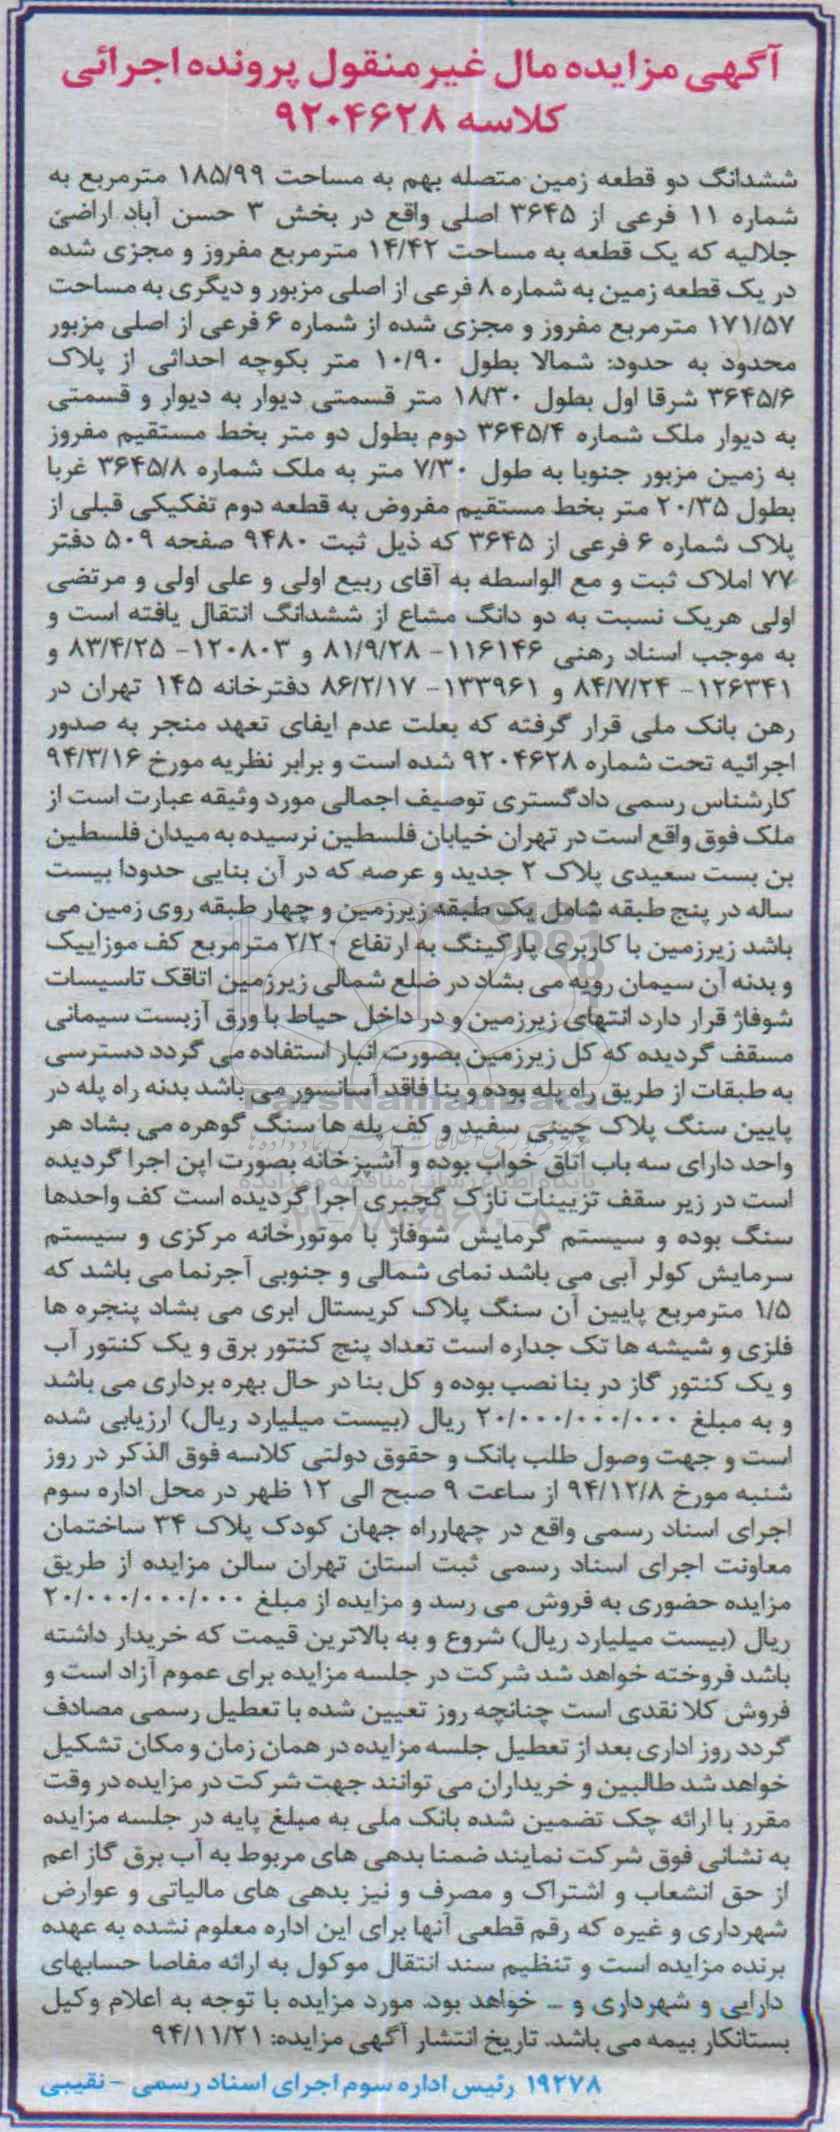 آگهی مزایده مال غیرمنقول پرونده اجرائی
کلاسه ۹۲۰۴۶۲۸
ششدانگ دو قطعه زمین متصله بهم به مساحت ۱۸۵/۹۹ مترمربع به
شماره ۱۱ فرعی از ۳۶۴۵ اصلی واقع در بخش ۳ حسن آباد اراضی
جلالیه که یک قطعه به مساحت ۱۴/۴۲ مترمربع مفروز و مجزی شده
در یک قطعه زمین به شماره ۸ فرعی از اصلی مزبور و دیگری به مساحت
۱۷۱/۵۷ مترمربع مفروز و مجزی شده از شماره ۶ فرعی از اصلی مزبور
محدود به حدود: شمالا بطول ۱۰/۹۰ متر بکوچه احداثی از پلاک
۳۶۴۵/۶ شرقا اول بطول ۱۸/۳۰ متر قسمتی دیوار به دیوار و قسمتی
به دیوار ملک شماره ۳۶۴۵/۴ دوم بطول دو متر بخط مستقیم مفروز
به زمین مزبور جنوبا به طول ۷/۳۰ متر به ملک شماره ۳۶۴۵/۸ غربا
بطول ۲۰/۳۵ متر بخط مستقیم مفروض به قطعه دوم تفکیکی قبلی از
پلاک شماره ۶ فرعی از ۳۶۴۵ که ذیل ثبت ۹۴۸۰ صفحه ۵۰۹ دفتر
۷۷ املاک ثبت و مع الواسطه به آقای ربیع اولی و علی اولی و مرتضی
اولی هریک نسبت به دو دانگ مشاع از ششدانگ انتقال یافته است و
به موجب اسناد رهنی ۱۱۶۱۴۶- ۸۱/۹/۲۸ و ۱۲۰۸۰۳- ۸۳/۴/۲۵ و
۱۲۶۳۴۱- ۸۴/۷/۲۴ و ۱۳۳۹۶۱- ۸۶/۲/۱۷ دفترخانه ۱۴۵ تهران در
رهن بانک ملی قرار گرفته که بعلت عدم ایفای تعهد منجر به صدور
اجرائیه تحت شماره ۹۲۰۴۶۲۸ شده است و برابر نظریه مورخ ۹۴/۳/۱۶
کارشناس رسمی دادگستری توصیف اجمالی مورد وثیقه عبارت است از
ملک فوق واقع است در تهران خیابان فلسطین نرسیده به میدان فلسطین
بن بست سعیدی پلاک ۲ جدید و عرصه که در آن بنایی حدودا بیست
ساله در پنج طبقه شامل یک طبقه زیرزمین و چهار طبقه روی زمین می
باشد زیرزمین با کاربری پارکینگ به ارتفاع ۲/۲۰ مترمربع کف موزاییک
و بدنه آن سیمان رویه می بشاد در ضلع شمالی زیرزمین اتاقک تاسیسات
شوفاژ قرار دارد انتهای زیرزمین و در داخل حیاط با ورق آزبست سیمانی
مسقف گردیده که کل زیرزمین بصورت انبار استفاده می گردد دسترسی
به طبقات از طریق راه پله بوده و بنا فاقد آسانسور می باشد بدنه راه پله در
پایین سنگ پلاک چینی سفید و کف پله ها سنگ گوهره می بشاد هر
واحد دارای سه باب اتاق خواب بوده و آشپزخانه بصورت اپن اجرا گردیده
است در زیر سقف تزیینات نازک گچبری اجرا گردیده است کف واحدها
سنگ بوده و سیستم گرمایش شوفاژ با موتورخانه مرکزی و سیستم
سرمایش کولر آبی می باشد نمای شمالی و جنوبی آجرنما می باشد که
۱/۵ مترمربع پایین آن سنگ پلاک کریستال ابری می بشاد پنجره ها
فلزی و شیشه ها تک جداره است تعداد پنج کنتور برق و یک کنتور آب
و یک کنتور گاز در بنا نصب بوده و کل بنا در حال بهره برداری می باشد
و به مبلغ ۲۰/۰۰۰/۰۰۰/۰۰۰ ریال (بیست میلیارد ریال) ارزیابی شده
است و جهت وصول طلب بانک و حقوق دولتی کلاسه فوق الذکر در روز
شنبه مورخ ۹۴/۱۲/۸ از ساعت ۹ صبح الی ۱۲ ظهر در محل اداره سوم
اجرای اسناد رسمی واقع در چهارراه جهان کودک پلاک ۳۴ ساختمان
معاونت اجرای اسناد رسمی ثبت استان تهران سالن مزایده از طریق
مزایده حضوری به فروش می رسد و مزایده از مبلغ ۲۰/۰۰۰/۰۰۰/۰۰۰
ریال (بیست میلیارد ریال) شروع و به بالاترین قیمت که خریدار داشته
باشد فروخته خواهد شد شرکت در جلسه مزایده برای عموم آزاد است و
فروش کلا نقدی است چنانچه روز تعیین شده با تعطیل رسمی مصادف
گردد روز اداری بعد از تعطیل جلسه مزایده در همان زمان و مکان تشکیل
خواهد شد طالبین و خریداران می توانند جهت شرکت در مزایده در وقت
مقرر با ارائه چک تضمین شده بانک ملی به مبلغ پایه در جلسه مزایده
به نشانی فوق شرکت نمایند ضمنا بدهی های مربوط به آب برق گاز اعم
از حق انشعاب و اشتراک و مصرف و نیز بدهی های مالیاتی و عوارض
شهرداری و غیره که رقم قطعی آنها برای این اداره معلوم نشده به عهده
برنده مزایده است و تنظیم سند انتقال موکول به ارائه مفاصا حسابهای
دارایی و شهرداری و ... خواهد بود. مورد مزایده با توجه به اعلام وکیل
بستانکار بیمه می باشد. تاریخ انتشار آگهی مزایده: ۹۴/۱۱/۲۱
۱۹۲۷۸ رئیس اداره سوم اجرای اسناد رسمی - نقیبی
ParsNamadData
پایگاه اطلاع رسانی مناقصه و مزایده